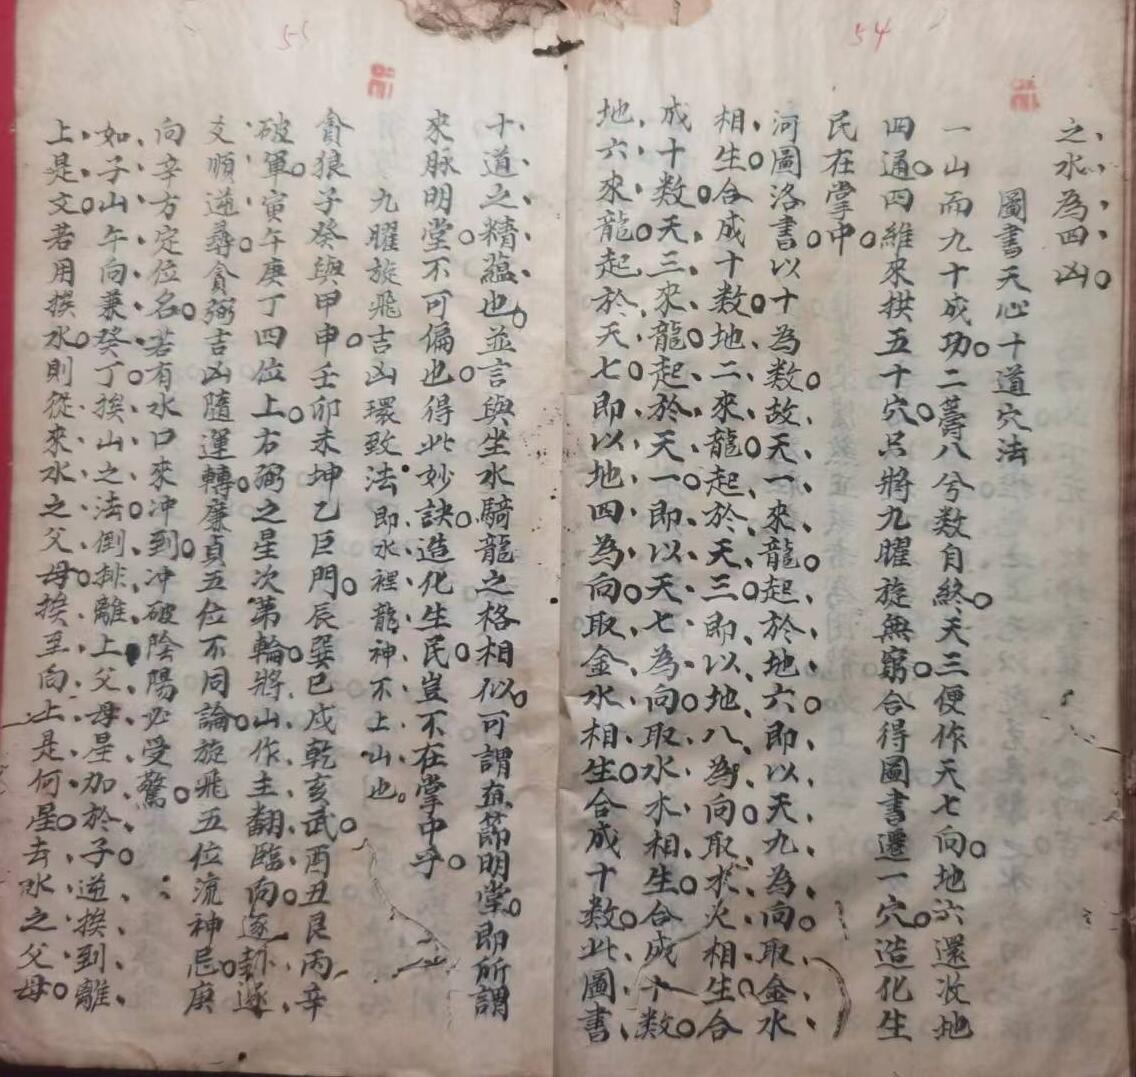 54
之水為四凶
圖書天心十道穴法
一山而九十成功二籌八兮数自終天三便作天七向地六還收地
四通四維來拱五十穴只將九曜旋無窮合得圖書遷一穴造化生
民在掌中
河圖洛書以十為数故天一來龍起於地六即以天九為向取金水
相生合成十数地二來龍起於天三即以地八為向取木火相生合
成十数天三來龍起於天一即以天七為向取水木相生合成十数
地六來龍起於天七即以地四為向取金水相生合成十数此圖書
55
十道之精蘊也並言與坐水騎龍之格相似可謂直節明堂即所謂
來脉明堂不可偏也得此妙訣造化生民豈不在掌中乎
九曜旋飛吉凶環致法即水裡龍神不上山也
貪狼子癸與甲申壬卯未坤乙巨門辰巽巳戌乾亥武酉丑艮丙辛
破軍寅午庚丁四位上方弼之星次第輪將山作主翻臨向逐卦逐
文順逆尋貪弼吉凶隨運轉廉貞五位不同論旋飛五位流神忌庚
向辛方定位名若有水口來冲到冲破陰陽必受驚
如子山午向兼癸丁挨山之法倒排離上父母星加於子逆挨到離
上是文若用挨水則從來水之父母挨至向上是何星去水之父母